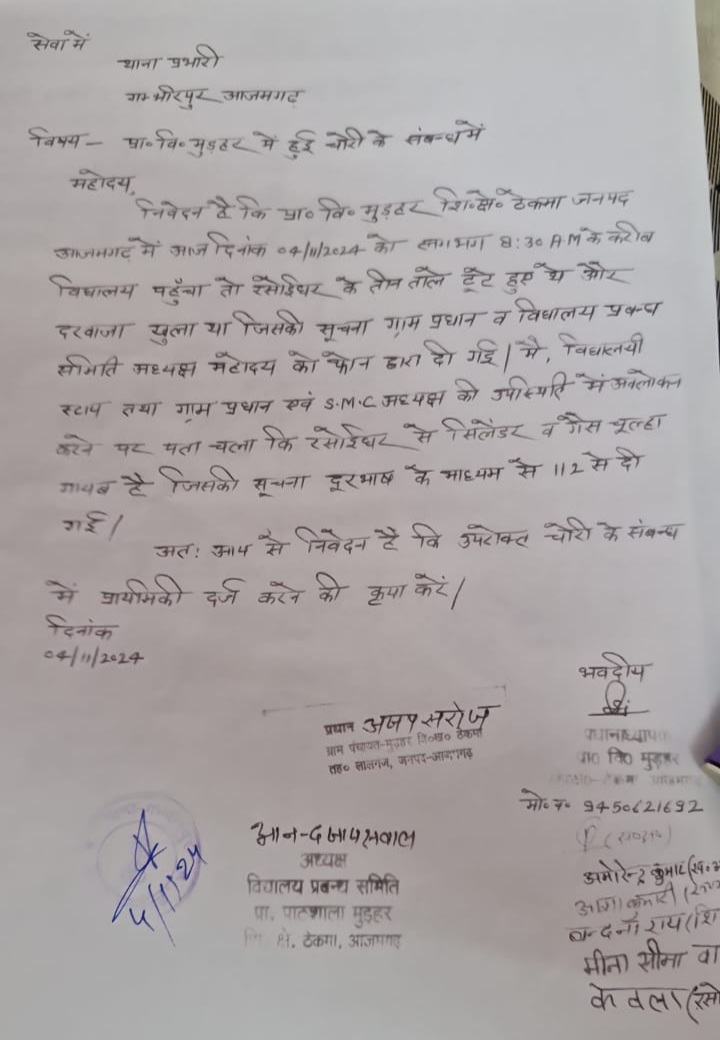 सेवा में
थाना प्रभारी
गम्भीरपुर आजमगढ़
विषय - प्रा० वि० मुड़हर में हुई चोरी के संबन्ध में
महोदय,
निवेदन है कि प्रा० वि० मुड़हर शि०क्षे० ठेकमा जनपद
आजमगढ़ में आज दिनांक 04/11/2024 को लगभग 8:30 A.M के करीब
विद्यालय पहुँचा तो रसोईघर के तीन ताले टूटे हुए थे और
दरवाजा खुला था जिसकी सूचना ग्राम प्रधान व विद्यालय प्रबन्ध
समिति अध्यक्ष महोदय को फोन द्वारा दी गई। मैं, विद्यालयी
स्टाप तथा ग्राम प्रधान एवं S.M.C अध्यक्ष की उपस्थिति में अवलोकन
करने पर पता चला कि रसोईघर से सिलेंडर व गैस चूल्हा
गायब है जिसकी सूचना दूरभाष के माध्यम से 112 से दी
गई।
अतः आप से निवेदन है कि उपरोक्त चोरी के संबन्ध
में प्राथमिकी दर्ज करने की कृपा करें।
दिनांक
04/11/2024
भवदीय
प्रधानाध्यापक
प्रा० वि० मुड़हर
मो०नं० 9450621692
प्रधान अजय सरोज
ग्राम पंचायत-मुड़हर वि०ख० ठेकमा
तह० लालगंज, जनपद-आजमगढ़
आनन्द जायसवाल
अध्यक्ष
विद्यालय प्रबन्ध समिति
प्रा. पाठशाला मुड़हर
शि. क्षे. ठेकमा, आजमगढ़
4/11/24
अमरेन्द्र कुमार
वन्दना राय (शि
मीना सीमा
केवला (रसो